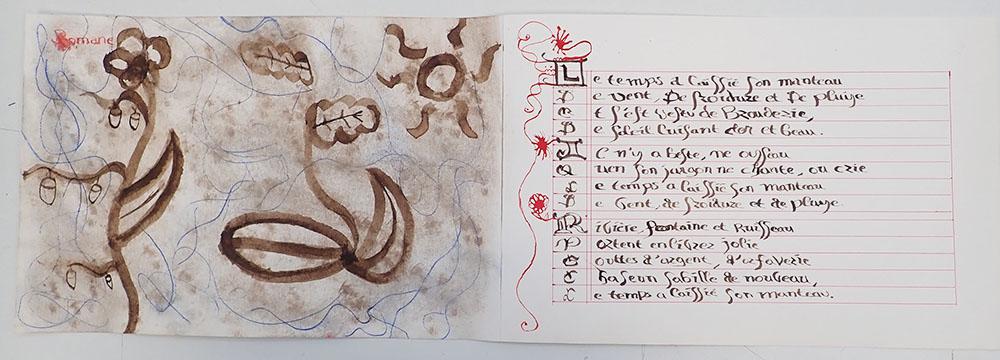 Romane
Le temps a laissié son manteau
De vent, De froidure et De pluye
Et s'est vestu de Brouderie,
De soleil luisant d'or et beau.
Il n'y a beste, ne oyseau
Quen son jargon ne chante, ou crie
Le temps a laissié son manteau
De Vent, de froidure et de pluye.
Rivière, fontaine et Ruisseau
Portent en livrée jolie
Gouttes d'argent, d'orfaverie
Chascun sabille de nouveau,
Le temps a laissié son manteau.